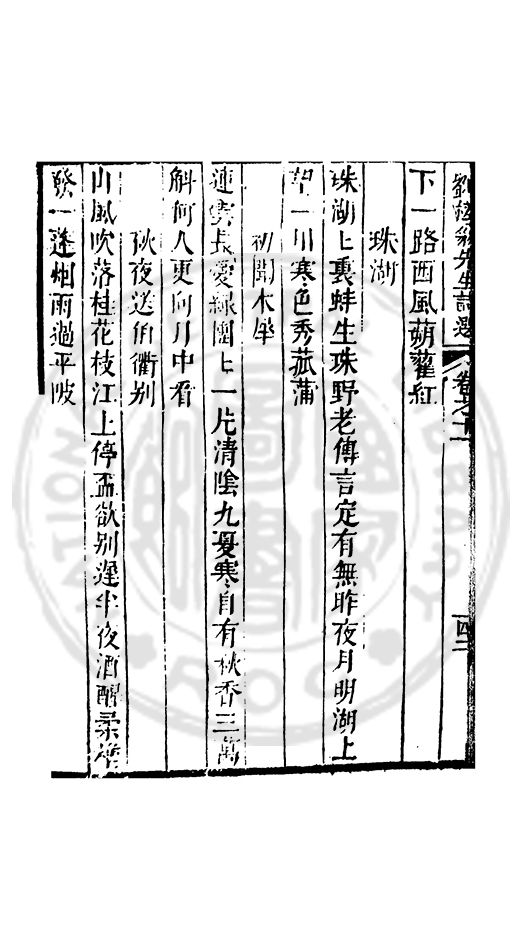 劉先生詩選 卷之十一 四二
下一路西風蒴藋紅
珠湖
珠湖〻裏蚌生珠野老傳言定有無昨夜月明湖上
望一川寒色秀菰蒲
初聞木犀
連雲長愛綠團〻一片清陰九夏寒自有秋香三萬
斛何人更向月中看
秋夜送伯衢别
山風吹落桂花枝江上停盃欲别遲半夜酒醒柔櫓
發一蓬烟雨過平陂